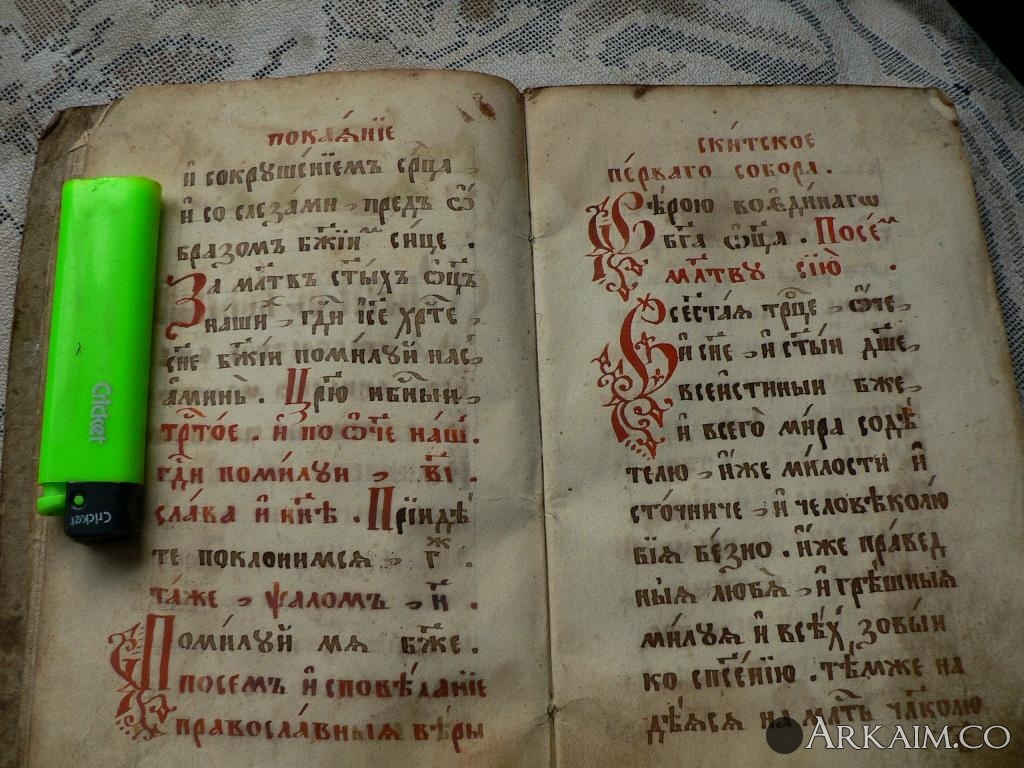 покаѧ́нїе
и҆ сокрꙋше́нїемъ ср҃ца
и҆ со слеза́ми, предъ ѡ҆́
бразомъ бж҃їиⷨ си́це .
За мл҃твъ ст҃ыхъ ѻ҆ц҃ъ
на́ши, гд҃и і҆с҃е хрⷭ҇те
сн҃е бж҃їи поми́лꙋй нас,
а҆ми́нь . Цр҃ю нбⷭ҇ныи,
трⷭ҇то́е . и҆ по ѻ҆́ч҃е на́ш .
гд҃и поми́лꙋи, в҃і
сла́ва и҆ нн҃ѣ . Прїидѣ́
те поклонимсѧ, г҃ⷤ .
та́же, ѱало́мъ, н҃ .
Поми́лꙋй мѧ бж҃е .
посемъ и҆сповѣ́данїе
правосла́вныѧ вѣ́ры
ски́тское
пе́рваго собо́ра .
Вѣ́рою во є҆ди́наго
бг҃а ѻ҆ц҃а . Посе́ⷨ
мл҃твꙋ сїю̀ .
Всест҃а́ѧ трⷪ҇це, ѻ҆́ч҃е,
и҆ сн҃е, и҆ ст҃ы́и дш҃е,
всеи҆стинныи бж҃е,
и҆ всего̀ ми́ра содѣ́
телю, и҆́же ми́лости и҆
сто́чниче, и҆ человѣколю́
бїѧ бе́зно . и҆́же пра́вед
ныѧ любѧ̀, и҆ грѣ́шныѧ
ми́лꙋѧ и҆ всѣ́х̾ зовы́и
ко спⷭ҇е́нїю . тѣ́мже на
дѣ́ѧсѧ на млⷭ҇ть чл҃колю
ARKAIM.CO
Cricket
Cricket